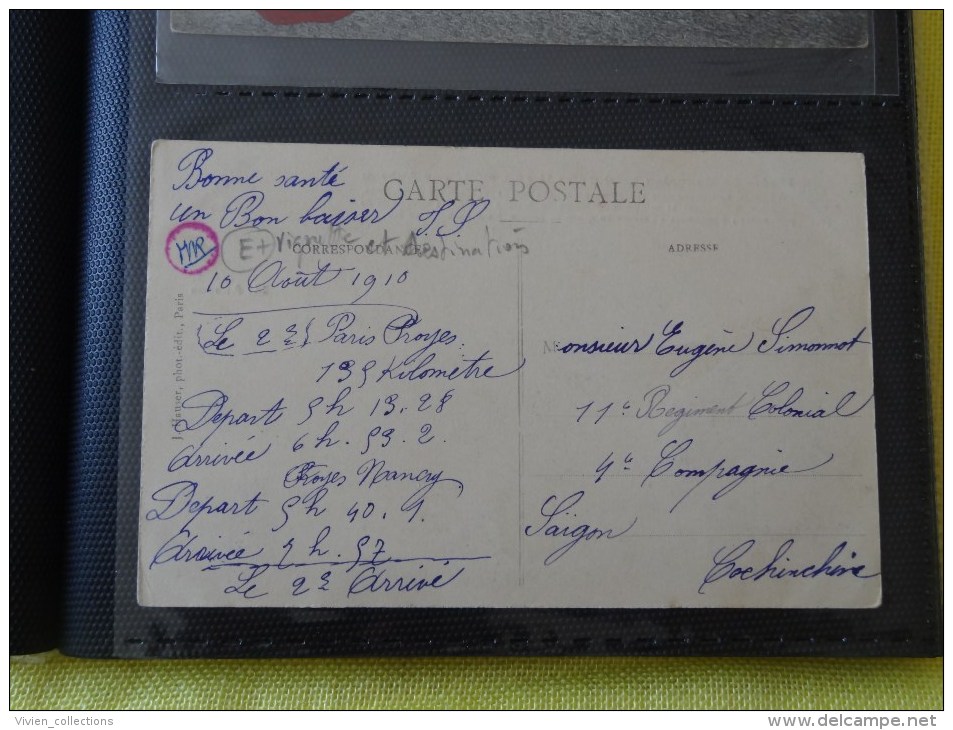 Bonne santé
CARTE POSTALE
un Bon baiser J.S.
E+ vignette et destination
CORRESPONDANCE
ADRESSE
10 Août 1910
Le 2e Paris Troyes
135 Kilometre
Depart 5h 13.28
Arrivée 6h. 53.2.
Troyes Nancy
Depart 5h 40.1.
Arrivée 7h. 57
Le 2e Arrivé
J. Hauser, phot.-édit., Paris
Monsieur Eugène Simonnot
11e Regiment Colonial
4e Compagnie
Saïgon
Cochinchine
Vivien_collections
http://www.delcampe.net